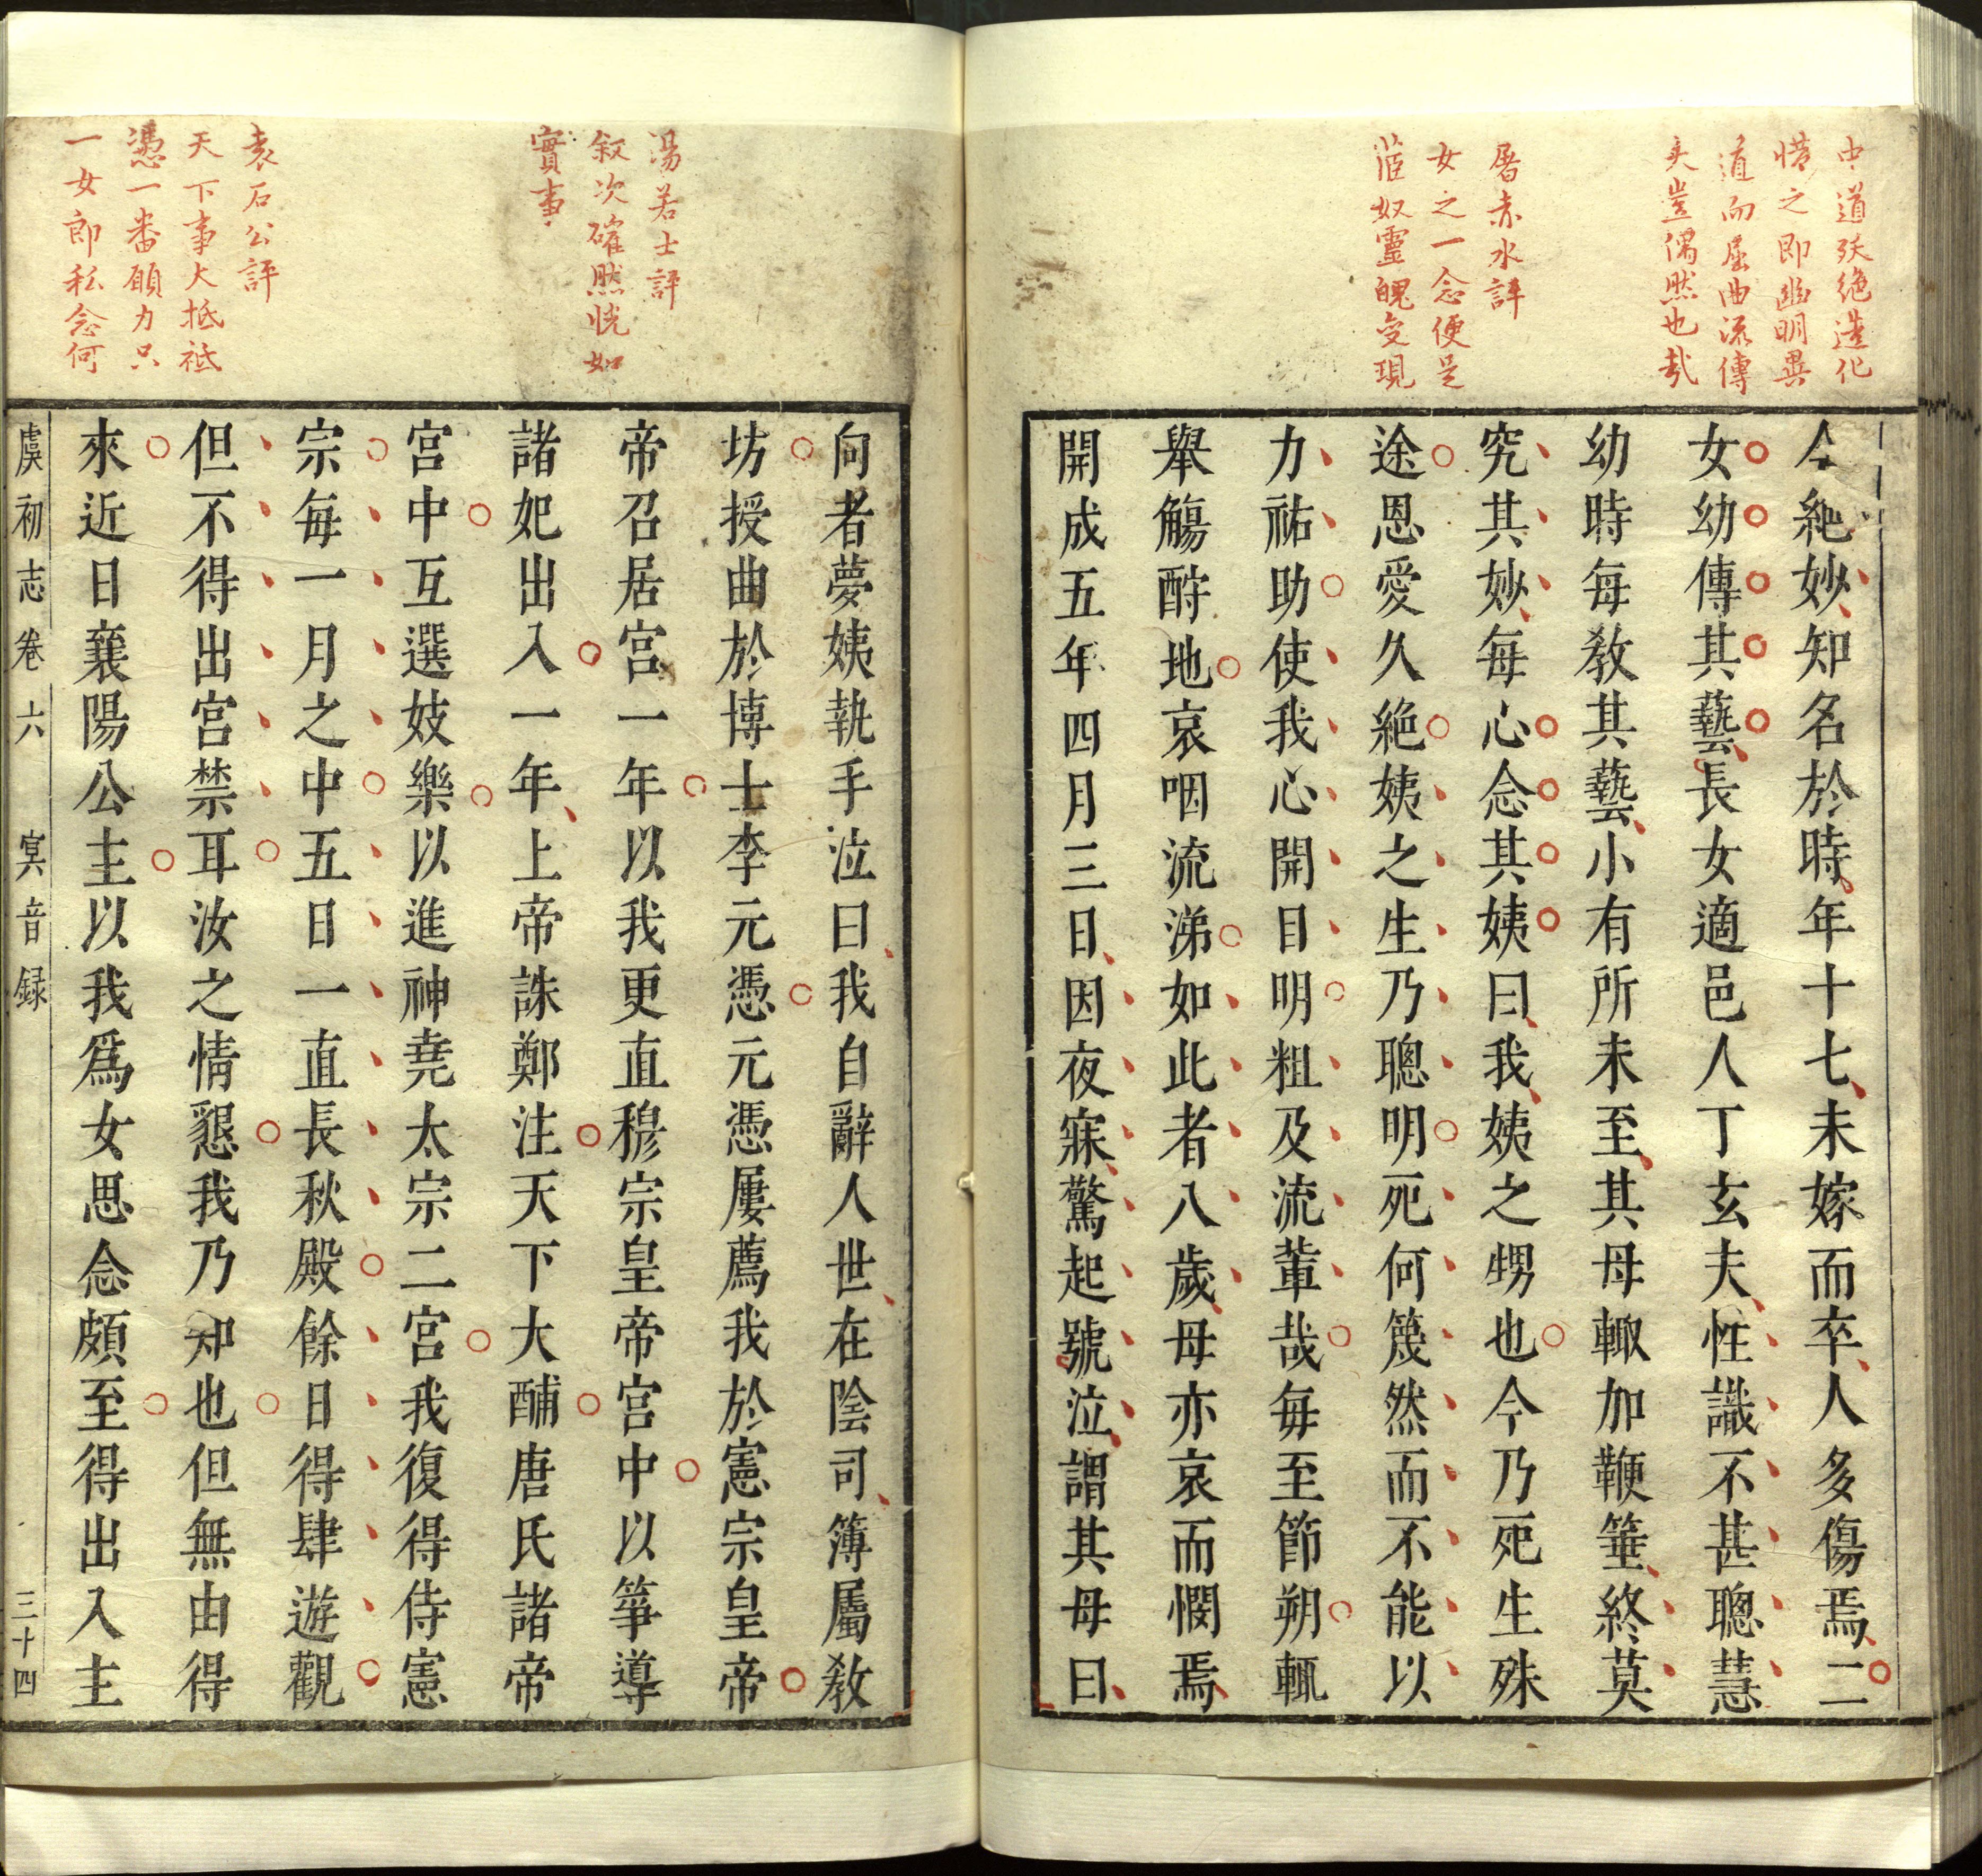 中道殀絶造化
惜之即幽明異
道而屈曲流傳
夫豈偶然也哉
屠赤水評
女之一念便足
菃奴靈魄變現
今絶妙知名於時年十七未嫁而卒人多傷焉二
女幼傳其藝長女適邑人丁玄夫性識不甚聰慧
幼時每教其藝小有所未至其母輙加鞭箠終莫
究其妙每心念其姨曰我姨之甥也今乃死生殊
途恩愛久絶姨之生乃聰明死何篾然而不能以
力祐助使我心開目明粗及流輩哉每至節朔輒
舉觴酹地哀咽流涕如此者八歲母亦哀而憫焉
開成五年四月三日因夜寐驚起號泣謂其母曰
湯若士評
叙次確然恍如
實事
袁石公評
天下事大抵祗
憑一番願力只
一女郎私念何
向者夢姨執手泣曰我自辭人世在陰司簿屬教
坊授曲於博士李元憑元憑屢薦我於憲宗皇帝
帝召居宮一年以我更直穆宗皇帝宮中以箏導
諸妃出入一年上帝誅鄭注天下大酺唐氏諸帝
宮中互選妓樂以進神堯太宗二宮我復得侍憲
宗每一月之中五日一直長秋殿餘日得肆遊觀
但不得出宮禁耳汝之情懇我乃知也但無由得
來近日襄陽公主以我爲女思念頗至得出入主
虞初志卷六 冥音録 三十四